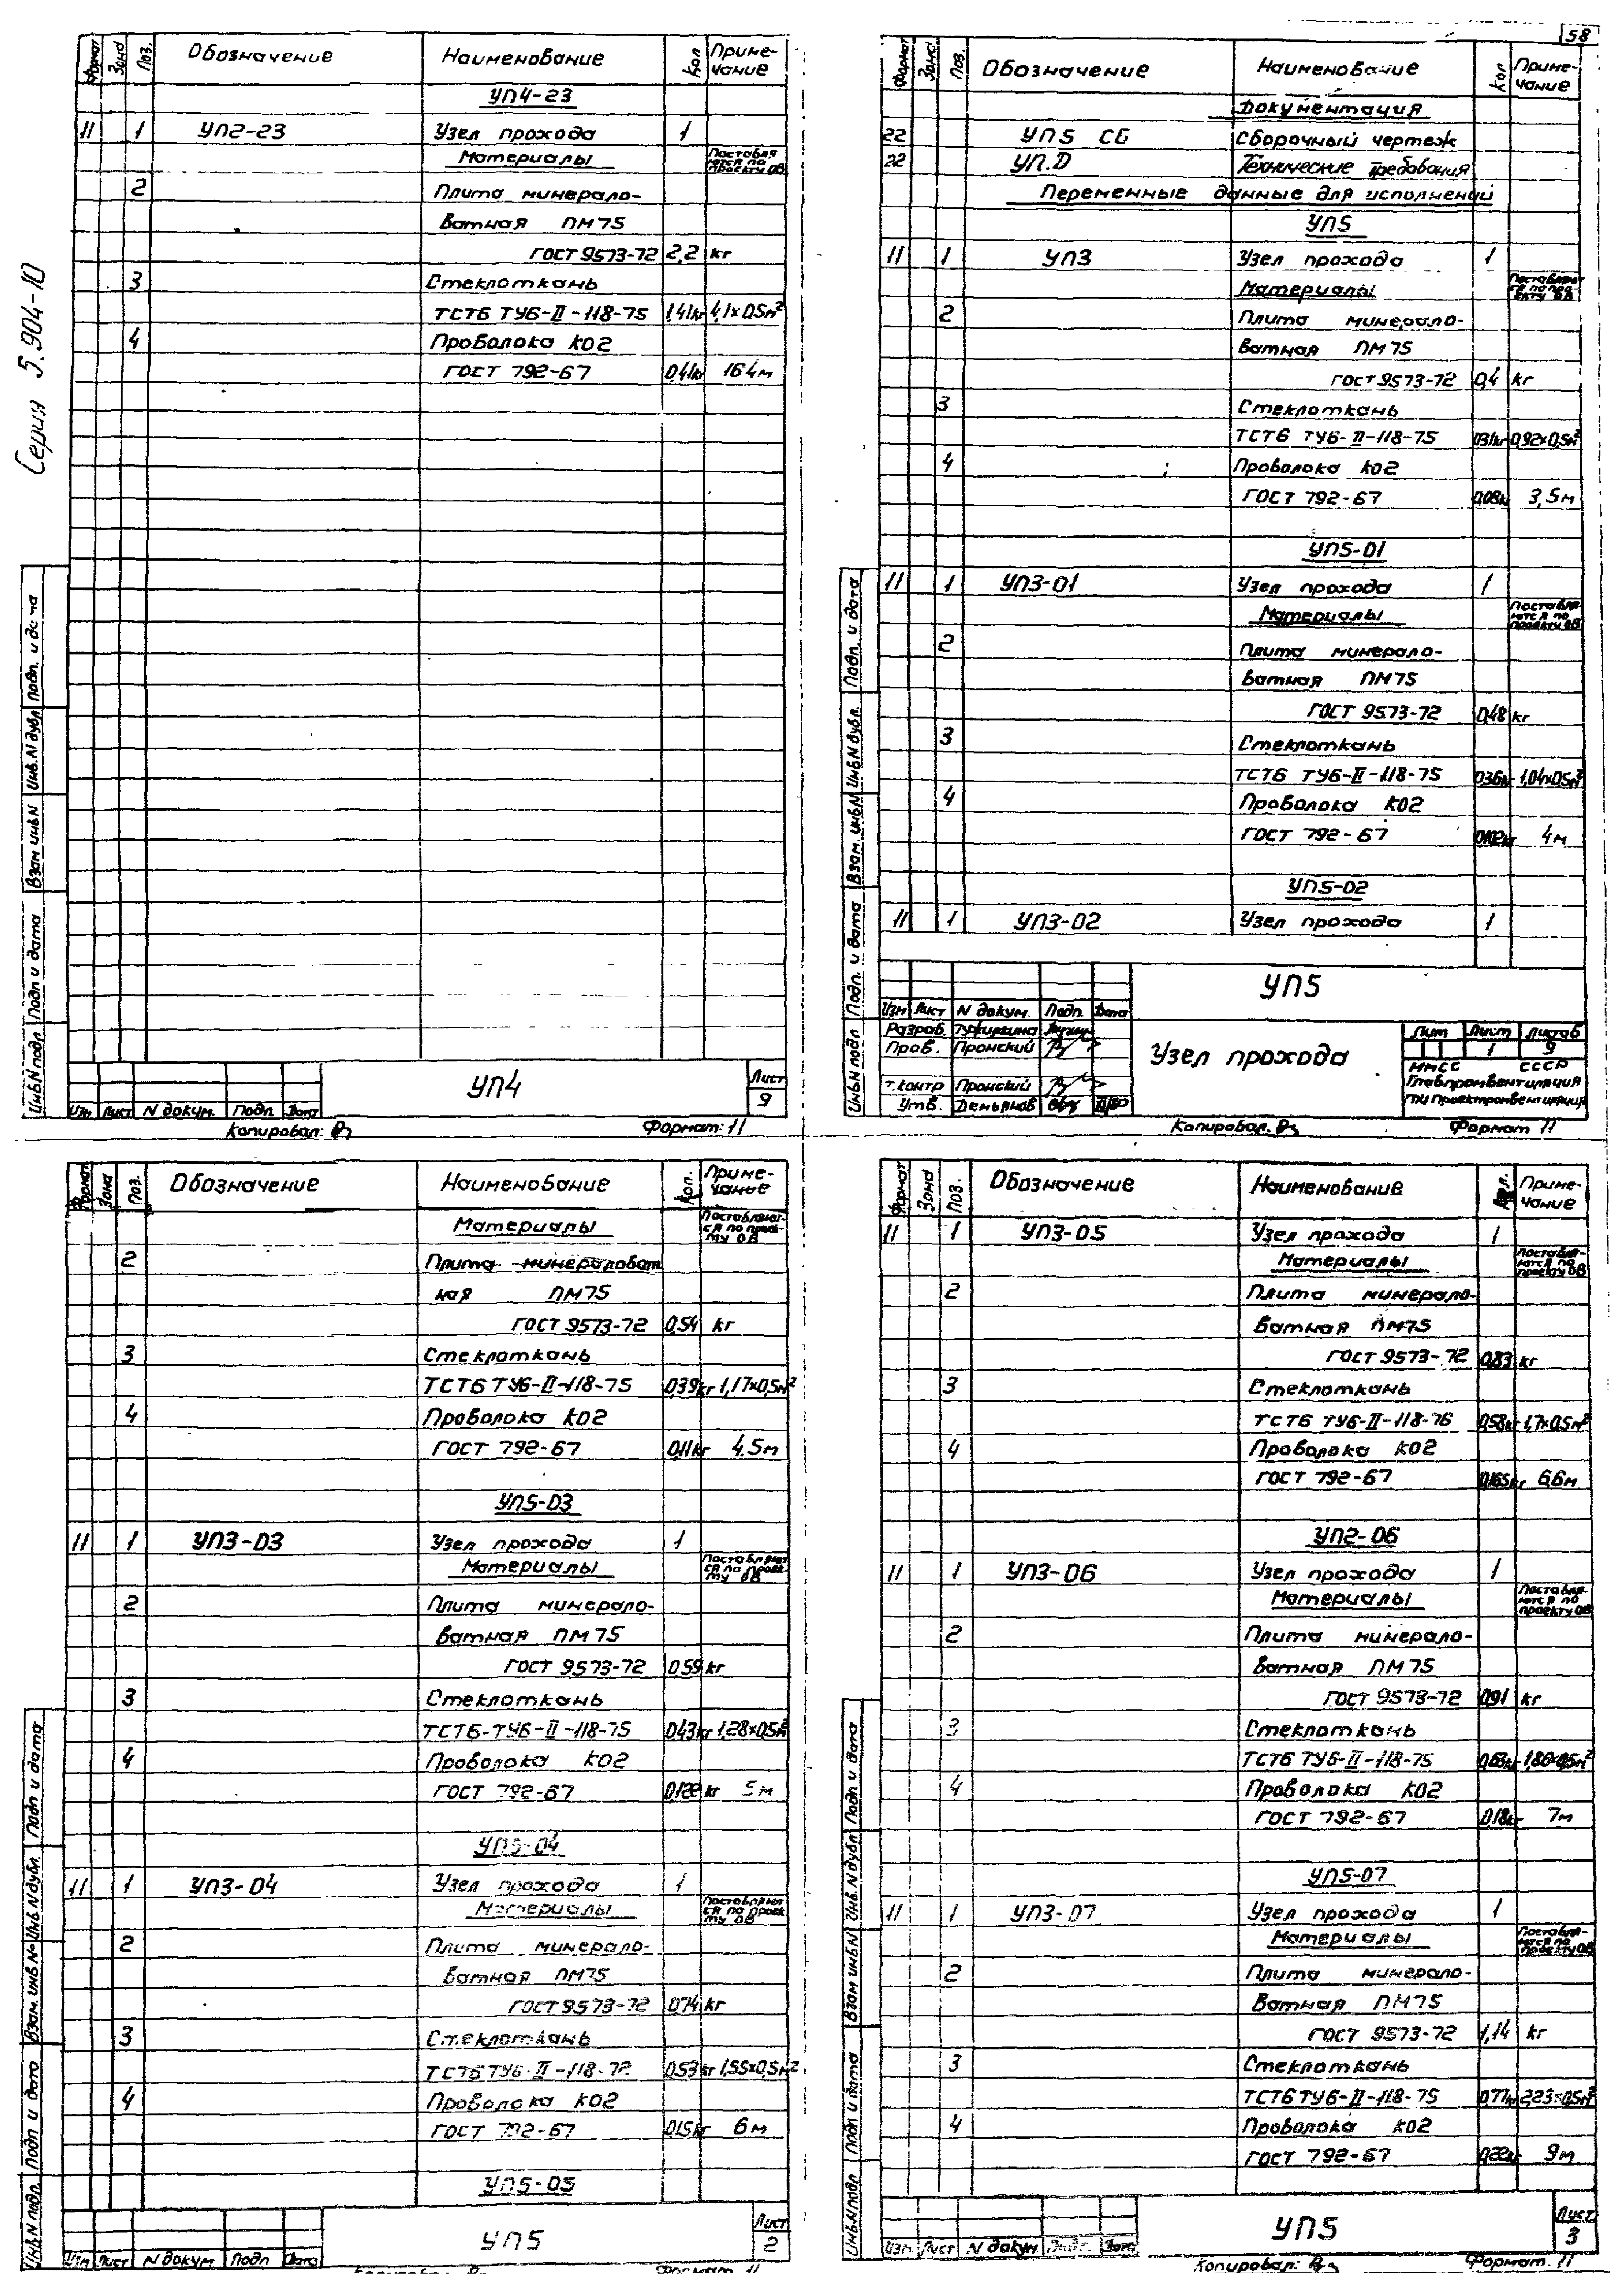 Серия 5.904-10
Формат Зона Поз. Обозначение Наименование Кол Приме-
чание
УП4-23
11 1 УП2-23 Узел прохода 1
Материалы Поставля-
ются по
проекту ОВ
2 Плита минерало-
ватная ПМ75
ГОСТ 9573-72 2,2 кг
3 Стеклоткань
ТСТ6 ТУ6-II-118-75 1,41кг 4,1х0,5м²
4 Проволока КО2
ГОСТ 792-67 0,41кг 16,4м
Инв.N подл Подп и дата Взам инв.N Инв.N дубл Подп. и дата
УП4
Лист
9
Изм Лист N докум. Подп Дата
Копировал: Формат: 11
58
Формат Зона Поз. Обозначение Наименование Кол Приме-
чание
Документация
22 УП5 СБ Сборочный чертеж
22 УП.Д Технические требования
Переменные данные для исполнений
УП5
11 1 УП3 Узел прохода 1
Материалы Поставляют
ся по про-
екту ОВ
2 Плита минерало-
ватная ПМ75
ГОСТ 9573-72 0,4 кг
3 Стеклоткань
ТСТ6 ТУ6-II-118-75 0,31кг 0,92х0,5м²
4 Проволока КО2
ГОСТ 792-67 0,08кг 3,5м
УП5-01
11 1 УП3-01 Узел прохода 1
Материалы Поставля-
ются по
проекту ОВ
2 Плита минерало-
ватная ПМ75
ГОСТ 9573-72 0,48 кг
3 Стеклоткань
ТСТ6 ТУ6-II-118-75 0,36кг 1,04х0,5м²
4 Проволока КО2
ГОСТ 792-67 4м
УП5-02
11 1 УП3-02 Узел прохода 1
Инв.N подл Подп. и дата Взам. инв.N Инв.N дубл. Подп. и дата
УП5
Изм Лист N докум. Подп. Дата
Разраб.
Пров. Пронский
Т.контр Пронский
Утв. Демьянов
Узел прохода
Лит Лист Листов
1 9
ММСС СССР
Главпромвентиляция
ПИ Проектпромвентиляция
Копировал. Формат 11
Формат Зона Поз. Обозначение Наименование Кол. Приме-
чание
Материалы Поставляют-
ся по проек-
ту ОВ
2 Плита минераловат
ная ПМ75
ГОСТ 9573-72 0,54 кг
3 Стеклоткань
ТСТ6 ТУ6-II-118-75 0,39кг 1,17х0,5м²
4 Проволока КО2
ГОСТ 792-67 0,11кг 4,5м
УП5-03
11 1 УП3-03 Узел прохода 1
Материалы Поставляют
ся по проек-
ту ОВ
2 Плита минерало-
ватная ПМ75
ГОСТ 9573-72 0,59 кг
3 Стеклоткань
ТСТ6-ТУ6-II-118-75 0,43кг 1,28х0,5м²
4 Проволока КО2
ГОСТ 792-67 0,122 кг 5м
УП5-04
11 1 УП3-04 Узел прохода 1
Материалы Поставляют
ся по проек
ту ОВ
2 Плита минерало-
ватная ПМ75
ГОСТ 9573-72 0,74 кг
3 Стеклоткань
ТСТ6 ТУ6-II-118-72 0,53 кг 1,55х0,5м²
4 Проволока КО2
ГОСТ 792-67 0,15кг 6м
УП5-05
Инв.N подл. Подп и дата Взам. инв.N Инв.N дубл. Подп и дата
УП5
Лист
2
Изм Лист N докум Подп Дата
Копировал: Формат 11
Формат Зона Поз. Обозначение Наименование Кол. Приме-
чание
11 1 УП3-05 Узел прохода 1
Материалы Поставля-
ются по
проекту ОВ
2 Плита минерало-
ватная ПМ75
ГОСТ 9573-72 0,83 кг
3 Стеклоткань
ТСТ6 ТУ6-II-118-76 0,58кг 1,7х0,5м²
4 Проволока КО2
ГОСТ 792-67 0,165кг 6,6м
УП2-06
11 1 УП3-06 Узел прохода 1
Материалы Поставля-
ются по
проекту ОВ
2 Плита минерало-
ватная ПМ75
ГОСТ 9573-72 0,91 кг
3 Стеклоткань
ТСТ6 ТУ6-II-118-75 0,63кг 1,86х0,5м²
4 Проволока КО2
ГОСТ 792-67 0,18кг 7м
УП5-07
11 1 УП3-07 Узел прохода 1
Материалы Поставля-
ются по
проекту ОВ
2 Плита минерало-
ватная ПМ75
ГОСТ 9573-72 1,14 кг
3 Стеклоткань
ТСТ6 ТУ6-II-118-75 0,77кг 2,23х0,5м²
4 Проволока КО2
ГОСТ 792-67 0,22кг 9м
Инв.N подл Подп и дата Взам инв.N Инв.N дубл Подп и дата
УП5
Лист
3
Изм Лист N докум Подп. Дата
Копировал: Формат. 11